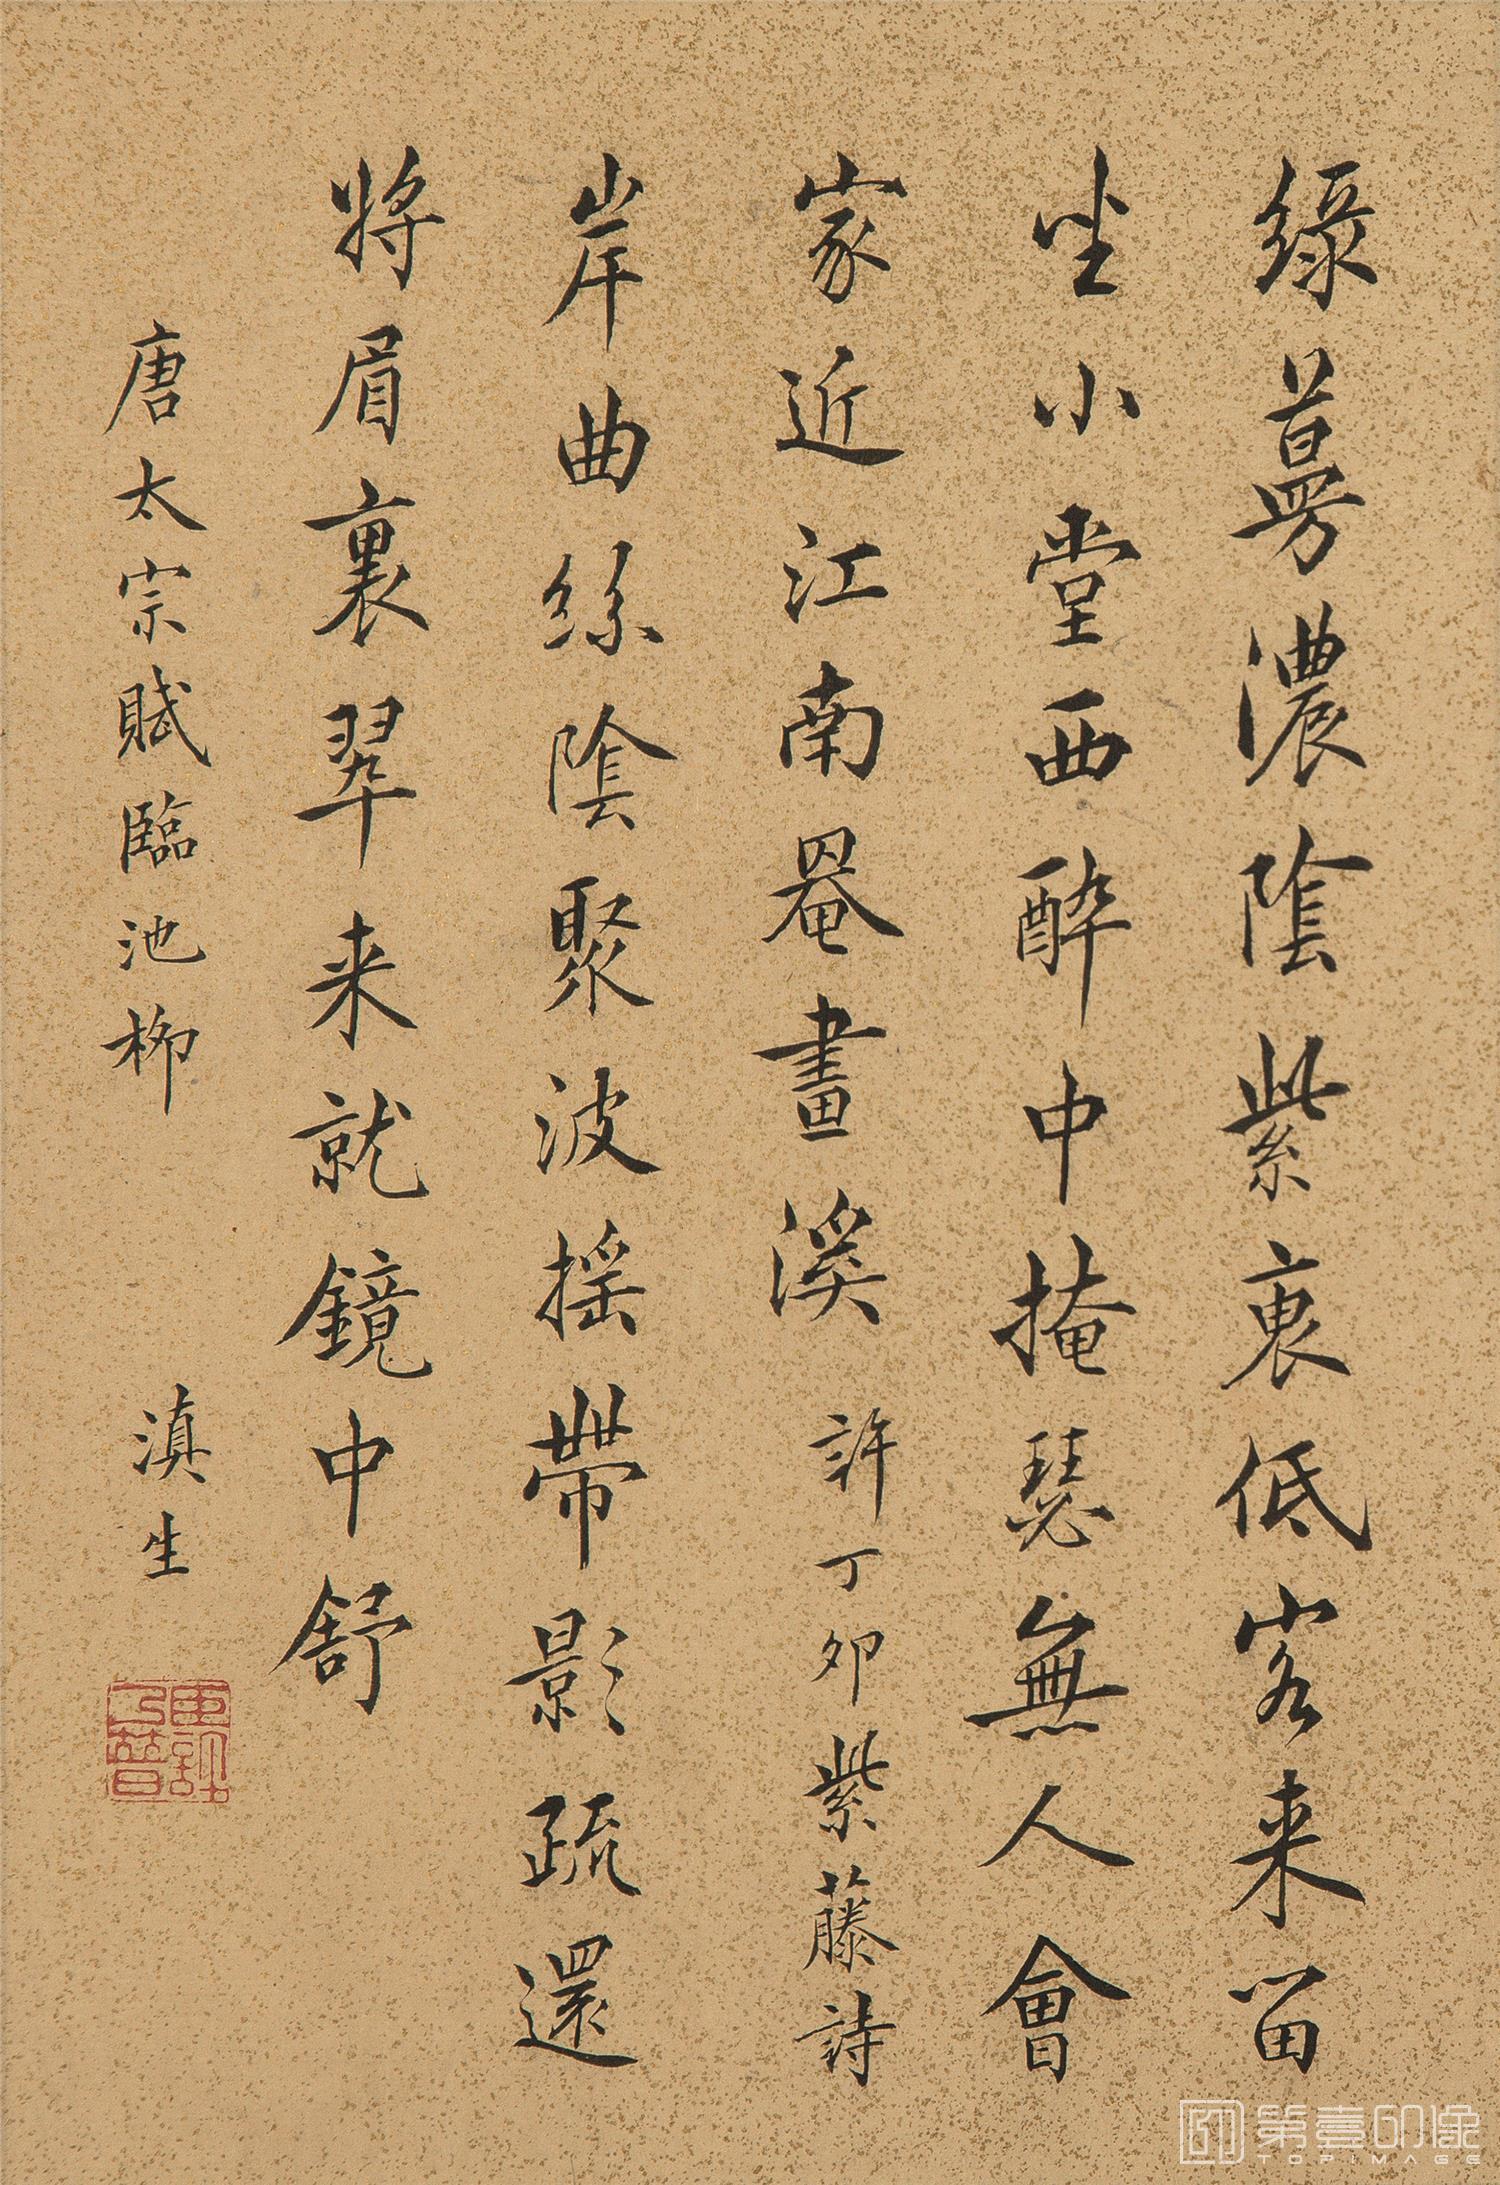 綠蔓濃陰紫衷低客来留
坐小堂西醉中掩瑟無人會
家近江南罨畫溪 許丁卯紫藤詩
岸曲絲陰聚波搖帶影疏還
將眉裏翠来就鏡中舒
唐太宗賦臨池柳 滇生
臣許乃普
第壹印像
TOPIMAGE